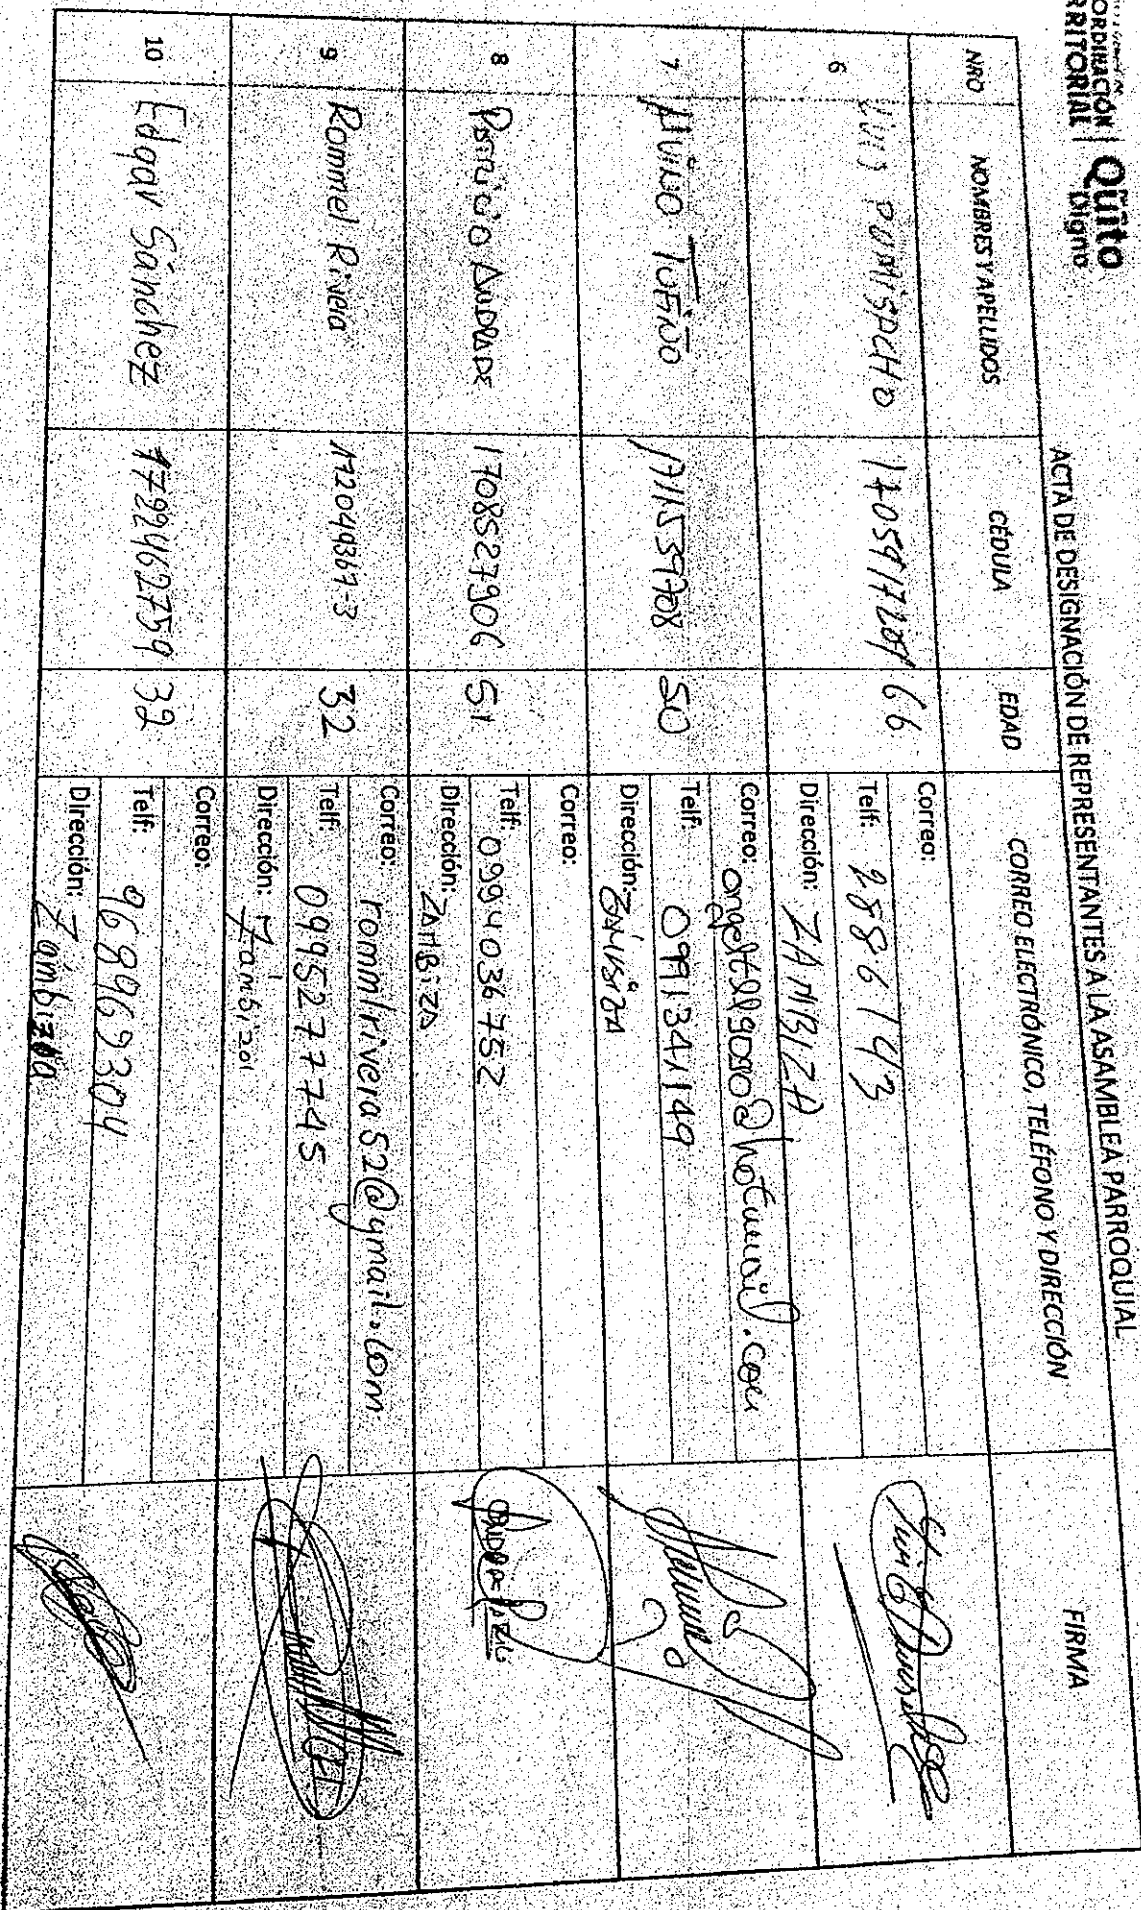 COORDINACIÓN
TERRITORIAL
Quito
Digno
ACTA DE DESIGNACIÓN DE REPRESENTANTES A LA ASAMBLEA PARROQUIAL
NRO NOMBRES Y APELLIDOS CÉDULA EDAD CORREO ELECTRÓNICO, TELÉFONO Y DIRECCIÓN FIRMA
6 Luis PUMISACHO 66
Correo:
Telf: 2886143
Dirección: ZAMBIZA
7 TUFIÑO 50
Correo: @hotmail.com
Telf: 0991341149
Dirección: ZÁMBIZA
8 Patricio ANDRADE 1708527906 51
Correo:
Telf: 0994036752
Dirección: ZAMBIZA
9 Rommel Rivera 172049367-3 32
Correo: rommlrivera52@gmail.com
Telf: 0995277745
Dirección: Zámbiza
10 Edgar Sánchez 1792462759 32
Correo:
Telf: 968962304
Dirección: Zámbiza